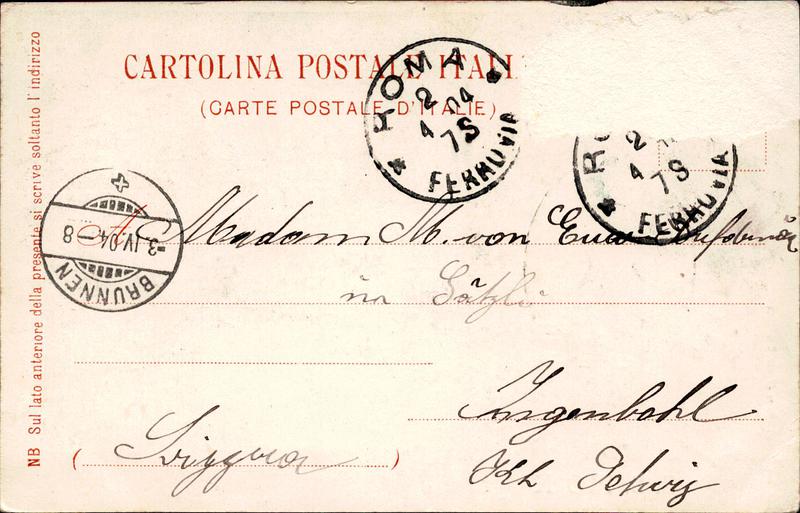 CARTOLINA POSTALE ITALI
(CARTE POSTALE D'ITALIE)
ROMA
2 04
4 7S
FERROVIA
RO
2
4 7S
FERROVIA
3.IV.04-8
BRUNNEN
A Madam M. von Euw
in
Ingenbohl
(Svizzera)
Kt. Schwiz
NB Sul lato anteriore della presente si scrive soltanto l'indirizzo